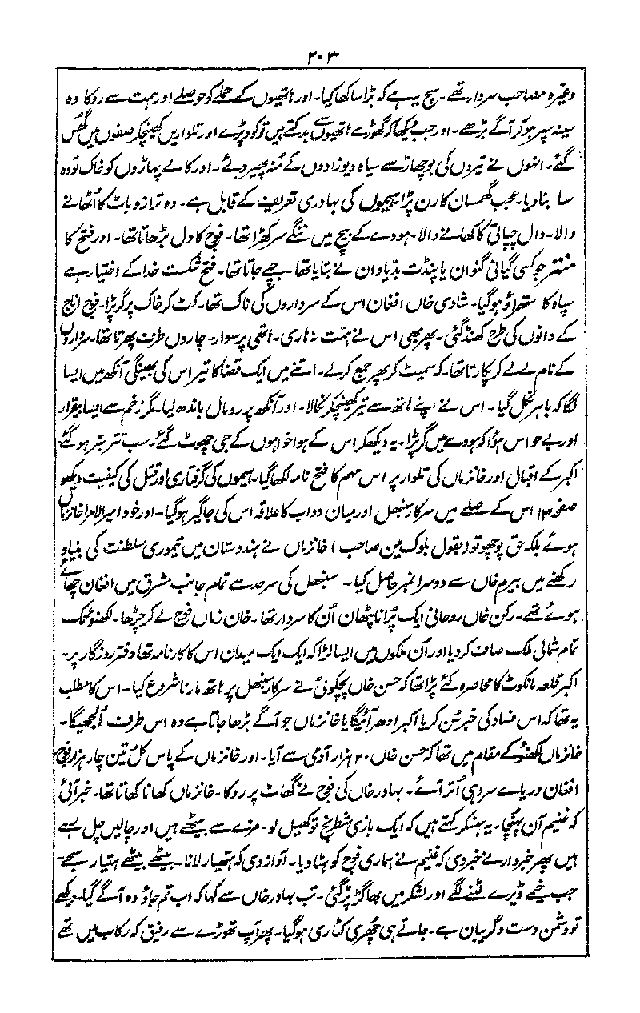 ۲۰۳
وغیرہ مصاحب سردار تھے۔ سچ یہ ہے کہ بڑا ساکھا کیا۔ اور ہاتھیوں کے حملے کو حوصلے اور ہمت سے روکا وہ
سینہ سپر ہو کر آگے بڑھے۔ اور جب دیکھا کہ گھوڑے ہاتھیوں سے بدکتے ہیں تو کود پڑے اور تلواریں کھینچکر صفوں میں گھس
گئے۔ انہوں نے تیروں کی بوچھاڑ سے سیاہ دیوزادوں کے منہ پھیر دیئے۔ اور کالے پہاڑوں کو خاک تودہ
سا بنا دیا۔ عجب گھمسان کا رن پڑا ہیموں کی بہادری تعریف کے قابل ہے۔ وہ ترازو باٹ کا اُٹھانے
والا۔ دال چپاتی کا کھانے والا۔ ہودے کے بیچ میں ننگے سر کھڑا تھا۔ فوج کا دل بڑھاتا تھا۔ اور فتح کا
منتر جو کسی گیانی گنوان یا پنڈت بدیاوان نے بتایا تھا۔ جپے جاتا تھا۔ فتح شکست خدا کے اختیار ہے
سپاہ کا ستھراؤ ہو گیا۔ شادی خاں افغان اس کے سرداروں کی ناک تھا۔ کٹ کر خاک پر گر پڑا۔ فوج اناج
کے دانوں کی طرح کھنڈ گئی۔ پھر بھی اس نے ہمت نہ ہاری۔ ہاتھی پر سوار۔ چاروں طرف پھرتا تھا۔ سرداروں
کے نام لے لے کر پکارتا تھا۔ کہ سمیٹ کر پھر جمع کرلے۔ اتنے میں ایک قضا کا تیر اس کی بھینگی آنکھ میں ایسا
لگا کہ باہر نکل گیا۔ اس نے اپنے ہاتھ سے تیر کھینچکر نکالا۔ اور آنکھ پر رومال باندھ لیا۔ مگر زخم سے ایسا بیقرار
اور بے حواس ہوا کہ ہودے میں گر پڑا۔ یہ دیکھکر اس کے ہواخواہوں کے جی چھوٹ گئے۔ سب تتر بتر ہو گئے
اکبر کے اقبال اور خانزماں کی تلوار پر اس مہم کا فتح نامہ لکھا گیا۔ ہیموں کی گرفتاری اور قتل کی کیفیت دیکھو
صفحہ ۱۳ اس کے صلے میں سرکار سنبھل اور میان دوآب کا علاقہ اس کی جاگیر ہو گیا۔ اور خود امیرالامرا خانزماں
ہوئے بلکہ حق پوچھو تو (بقول بلوک مین صاحب) خانزماں نے ہندوستان میں تیموری سلطنت کی بنیاد
رکھنے میں بیرم خاں سے دوسرا نمبر حاصل کیا۔ سنبھل کی سرحد سے تمام جانب مشرق میں افغان چھائے
ہوئے تھے۔ رکن خاں روحانی ایک پرانا پٹھان اُن کا سردار تھا۔ خان زماں فوج لے کر چڑھا۔ لکھنؤ تک
تمام شمالی ملک صاف کر دیا اور اُن ملکوں میں ایسا لڑا کہ ایک ایک میدان اس کا کارنامہ تھا دفتر روزگار پر۔
اکبر قلعہ مانکوٹ کا محاصرہ کئے پڑا تھا کہ حسن خاں بچکوٹی نے سرکار سنبھل پر ہاتھ مارنا شروع کیا۔ اس کا مطلب
یہ تھا کہ اس فساد کی خبر سُن کر یا اکبر ادھر آئیگا یا خانزماں جو آگے بڑھا جاتا ہے وہ اس طرف الجھیگا۔
خانزماں لکھنؤ کے مقام میں تھا کہ حسن خاں ۲۰ ہزار آدمی سے آیا۔ اور خانزماں کے پاس کل تین چار ہزار فوج
افغان دریائے سروہی اُتر آئے۔ بہادر خاں کی فوج نے گھاٹ پر روکا۔ خانزماں کھانا کھاتا تھا۔ خبر آئی
کہ غنیم آن پہنچا۔ یہ ہنسکر کہتے ہیں کہ ایک بازی شطرنج تو کھیل لو۔ مزے سے بیٹھے ہیں اور چالیں چل رہے
ہیں پھر خبردار نے خبر دی کہ غنیم نے ہماری فوج کو ہٹا دیا۔ آواز دی کہ ہتھیار لانا۔ بیٹھے بیٹھے ہتھیار سجے۔
جب خیمے ڈیرے لٹنے لگے اور لشکر میں بھاگڑ پڑ گئی۔ تب بہادر خاں سے کہا کہ اب تم جاؤ وہ آگے گیا۔ دیکھے
تو دشمن دست و گریبان ہے۔ جاتے ہی چھری کٹاری ہو گیا۔ پھر آپ تھوڑے سے رفیق کہ رکاب میں تھے